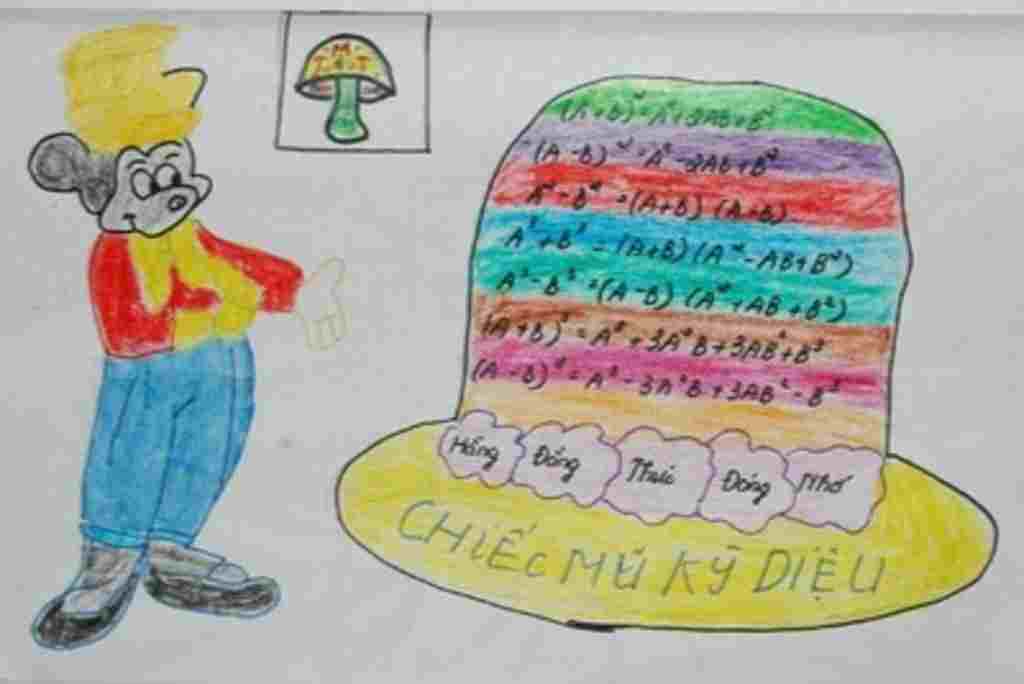 (A+B)² = A²+2AB+B²
(A-B)² = A²-2AB+B²
A²-B² = (A+B) (A+B)
A³+B³ = (A+B) (A²-AB+B²)
A³-B³ = (A-B) (A²+AB+B²)
(A+B)³ = A³+3A²B+3AB²+B³
(A-B)³ = A³-3A²B+3AB²-B³
Hằng Đẳng Thức Đáng Nhớ
CHIẾC MŨ KỲ DIỆU